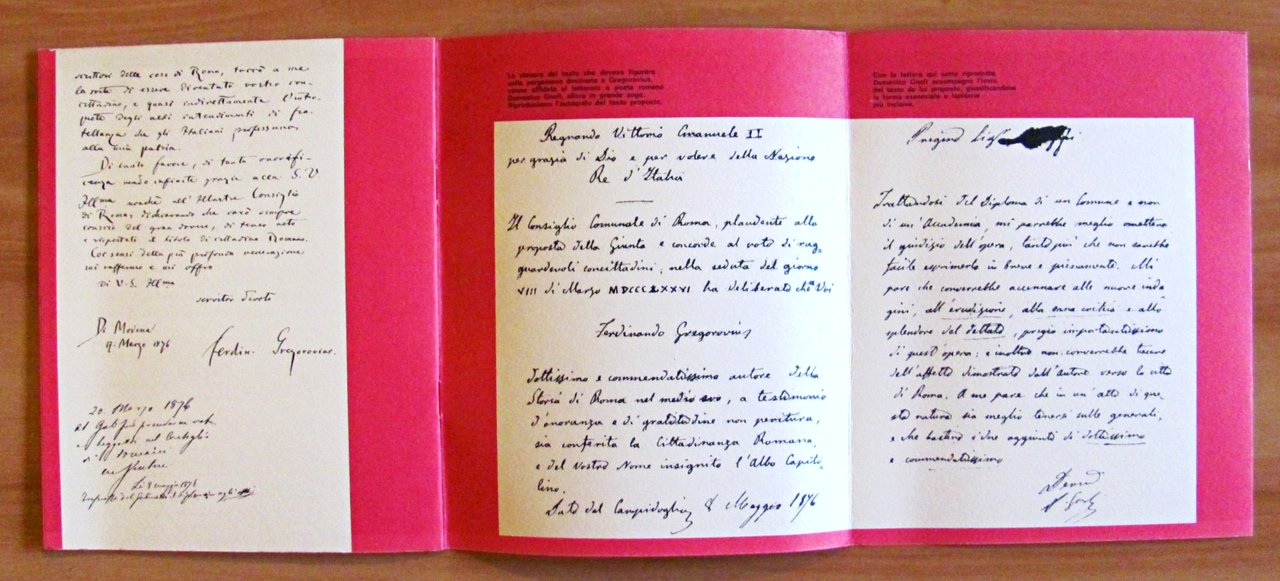 scrittori delle cose di Roma, toccò a me
la sorte di essere diventato vostro con-
cittadino, e quasi indirettamente l'inter-
prete degli alti intendimenti di fra-
tellanza che gli Italiani professano
alla mia patria.
Di tanto favore, di tanta onorifi-
cenza rendo infinite grazie alla S. V.
Illma nonchè all'Illustre Consiglio
di Roma, dichiarando che sarò sempre
conscio del gran dovere, di tener alto
e rispettato il titolo di cittadino Romano.
Coi sensi della più profonda venerazione
mi raffermo e mi offro
di V. S. Illma
servitor devoto
Di Modena
9. Marzo 1876
Ferdin. Gregorovius.
20. Marzo 1876
Li 8 maggio 1876
La stesura del testo che doveva figurare
sulla pergamena destinata a Gregorovius,
venne affidata al letterato e poeta romano
Domenico Gnoli, allora in grande auge.
Riproduciamo l'autografo del testo proposto.
Regnando Vittorio Emanuele II
per grazia di Dio e per volere della Nazione
Re d'Italia
Il Consiglio Comunale di Roma, plaudente alla
proposta della Giunta e concorde al voto di rag-
guardevoli concittadini, nella seduta del giorno
VIII di Marzo MDCCCLXXVI ha deliberato che a Voi
Ferdinando Gregorovius
dottissimo e commendatissimo autore della
Storia di Roma nel medio evo, a testimonio
d'onoranza e di gratitudine non peritura,
sia conferita la Cittadinanza Romana,
e del Vostro Nome insignito l'Albo Capito-
lino.
Dato dal Campidoglio 8 Maggio 1876
Con la lettera qui sotto riprodotta,
Domenico Gnoli accompagna l'invio
del testo da lui proposto, giustificandone
la forma essenziale e lapidaria
più incisiva.
Pregmo Sig
Trattandosi del Diploma di un Comune e non
di un'Accademia, mi parrebbe meglio omettere
il giudizio dell'opera, tanto più che non sarebbe
facile esprimerlo in breve e pienamente. Mi
pare che converrebbe accennare alle nuove inda
gini, all'erudizione, alla sana critica e allo
splendore del dettato, pregio importantissimo
di quest'opera: e inoltre non converrebbe tacere
dell'affetto dimostrato dall'autore verso la città
di Roma. A me pare che in un'atto di que-
sta natura sia meglio tenersi sulle generali,
e che bastino i due aggiunti di dottissimo
e commendatissimo
D. Gnoli